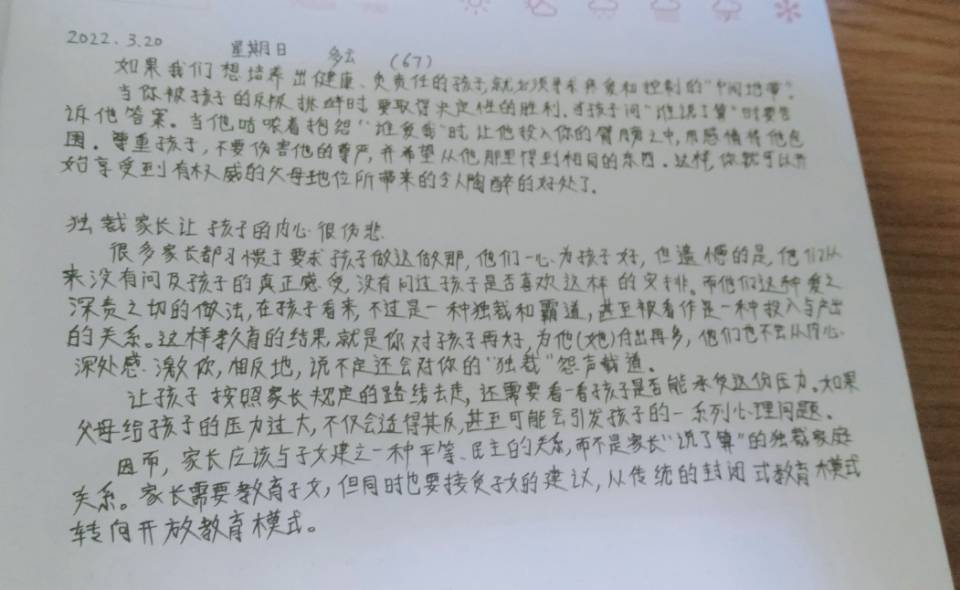 2022.3.20 星期日 多云 (67)
如果我们想培养出健康、负责任的孩子,就必须寻求疼爱和控制的“中间地带”。
当你被孩子的反叛挑衅时,要取得决定性的胜利。当孩子问“谁说了算”时要告
诉他答案。当他咕哝着抱怨“谁爱我”时,让他投入你的臂膀之中,用感情将他包
围。尊重孩子,不要伤害他的尊严,并希望从他那里得到相同的东西。这样,你就可以开
始享受到有权威的父母地位所带来的令人陶醉的好处了。
独裁家长让孩子的内心很伤悲
很多家长都习惯于要求孩子做这做那,他们一心为孩子好,但遗憾的是,他们从
来没有问及孩子的真正感受,没有问过孩子是否喜欢这样的安排。而他们这种爱之
深责之切的做法,在孩子看来,不过是一种独裁和霸道,甚至被看作是一种投入与产出
的关系。这样教育的结果,就是你对孩子再好,为他(她)付出再多,他们也不会从内心
深处感激你,相反地,说不定还会对你的“独裁”怨声载道。
让孩子按照家长规定的路线去走,还需要看一看孩子是否能承受这份压力。如果
父母给孩子的压力过大,不仅会适得其反,甚至可能会引发孩子的一系列心理问题。
因而,家长应该与子女建立一种平等、民主的关系,而不是家长“说了算”的独裁家庭
关系。家长需要教育子女,但同时也要接受子女的建议,从传统的封闭式教育模式
转向开放教育模式。